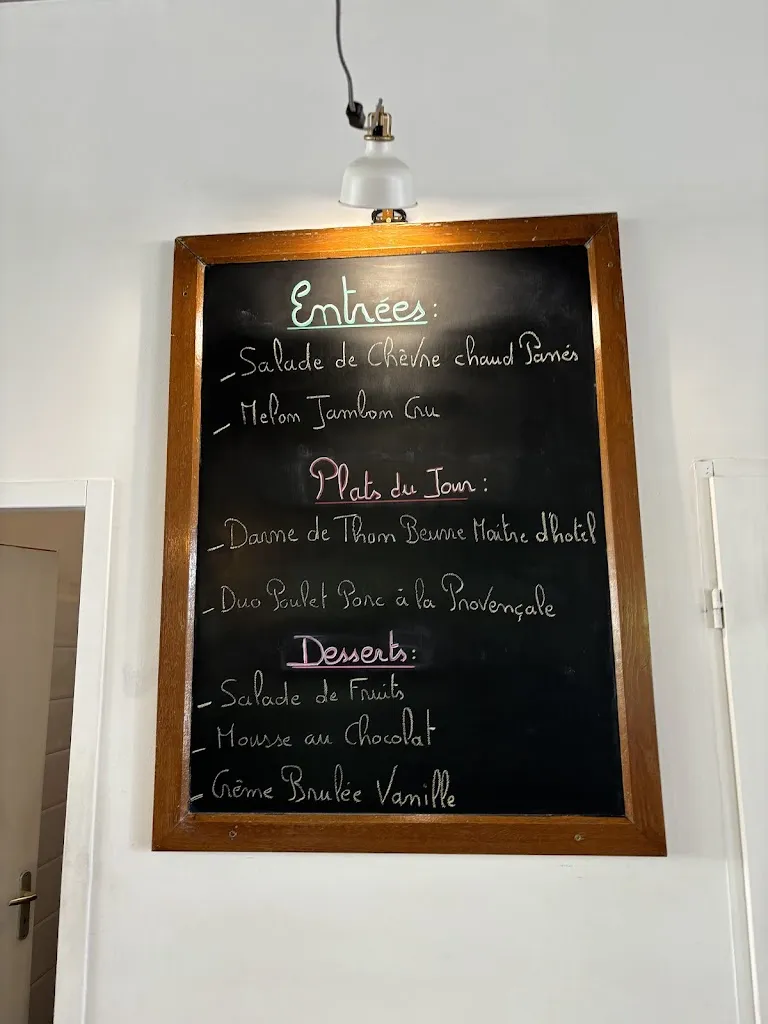 Entrées:
- Salade de Chêvre chaud Panés
- Melon Jambon Cru
Plats du Jour:
- Darne de Thon Beurre Maitre d'hotel
- Duo Poulet Porc à la Provençale
Desserts:
- Salade de Fruits
- Mousse au Chocolat
- Crême Brulée Vanille